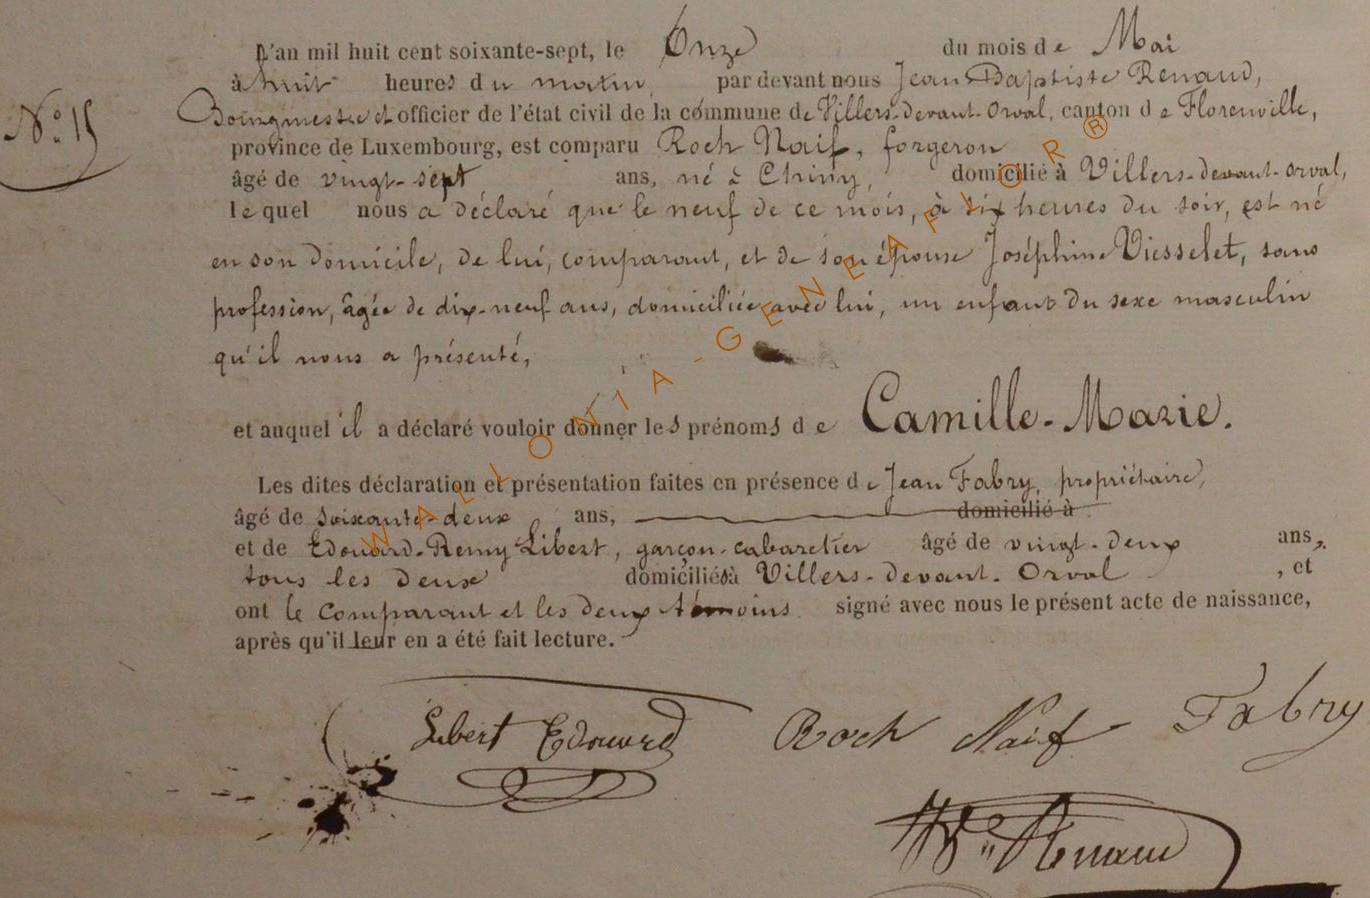 L'an mil huit cent soixante-sept, le Onze du mois de Mai
à huit heures du matin, par devant nous Jean Baptiste Renaud,
N.° 15
Bourgmestre et officier de l'état civil de la commune de Villers-devant-Orval, canton de Florenville,
province de Luxembourg, est comparu Roch Naif, forgeron
âgé de vingt-sept ans, né à Chiny, domicilié à Villers-devant-Orval,
lequel nous a déclaré que le neuf de ce mois, à six heures du soir, est né
en son domicile, de lui, comparant, et de son épouse Joséphine Viesselet, sans
profession, âgée de dix-neuf ans, domiciliée avec lui, un enfant du sexe masculin
qu'il nous a présenté,
et auquel il a déclaré vouloir donner les prénoms de Camille-Marie.
Les dites déclaration et présentation faites en présence de Jean Fabry, propriétaire,
âgé de soixante-deux ans, domicilié à
et de Edouard-Remy Libert, garçon-cabaretier âgé de vingt-deux ans,
tous les deux domiciliés à Villers-devant-Orval, et
ont le comparant et les deux témoins signé avec nous le présent acte de naissance,
après qu'il leur en a été fait lecture.
Libert Edouard Roch Naif Fabry
Renaud
WALLONIA-GENEAFLOR®